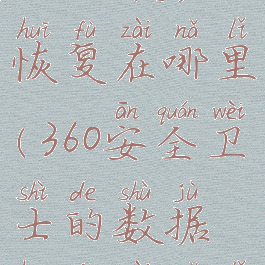 huī fù zài nǎ lǐ
恢复在哪里
ān quán wèi
(360安全卫
shì de shù jù
士的数据